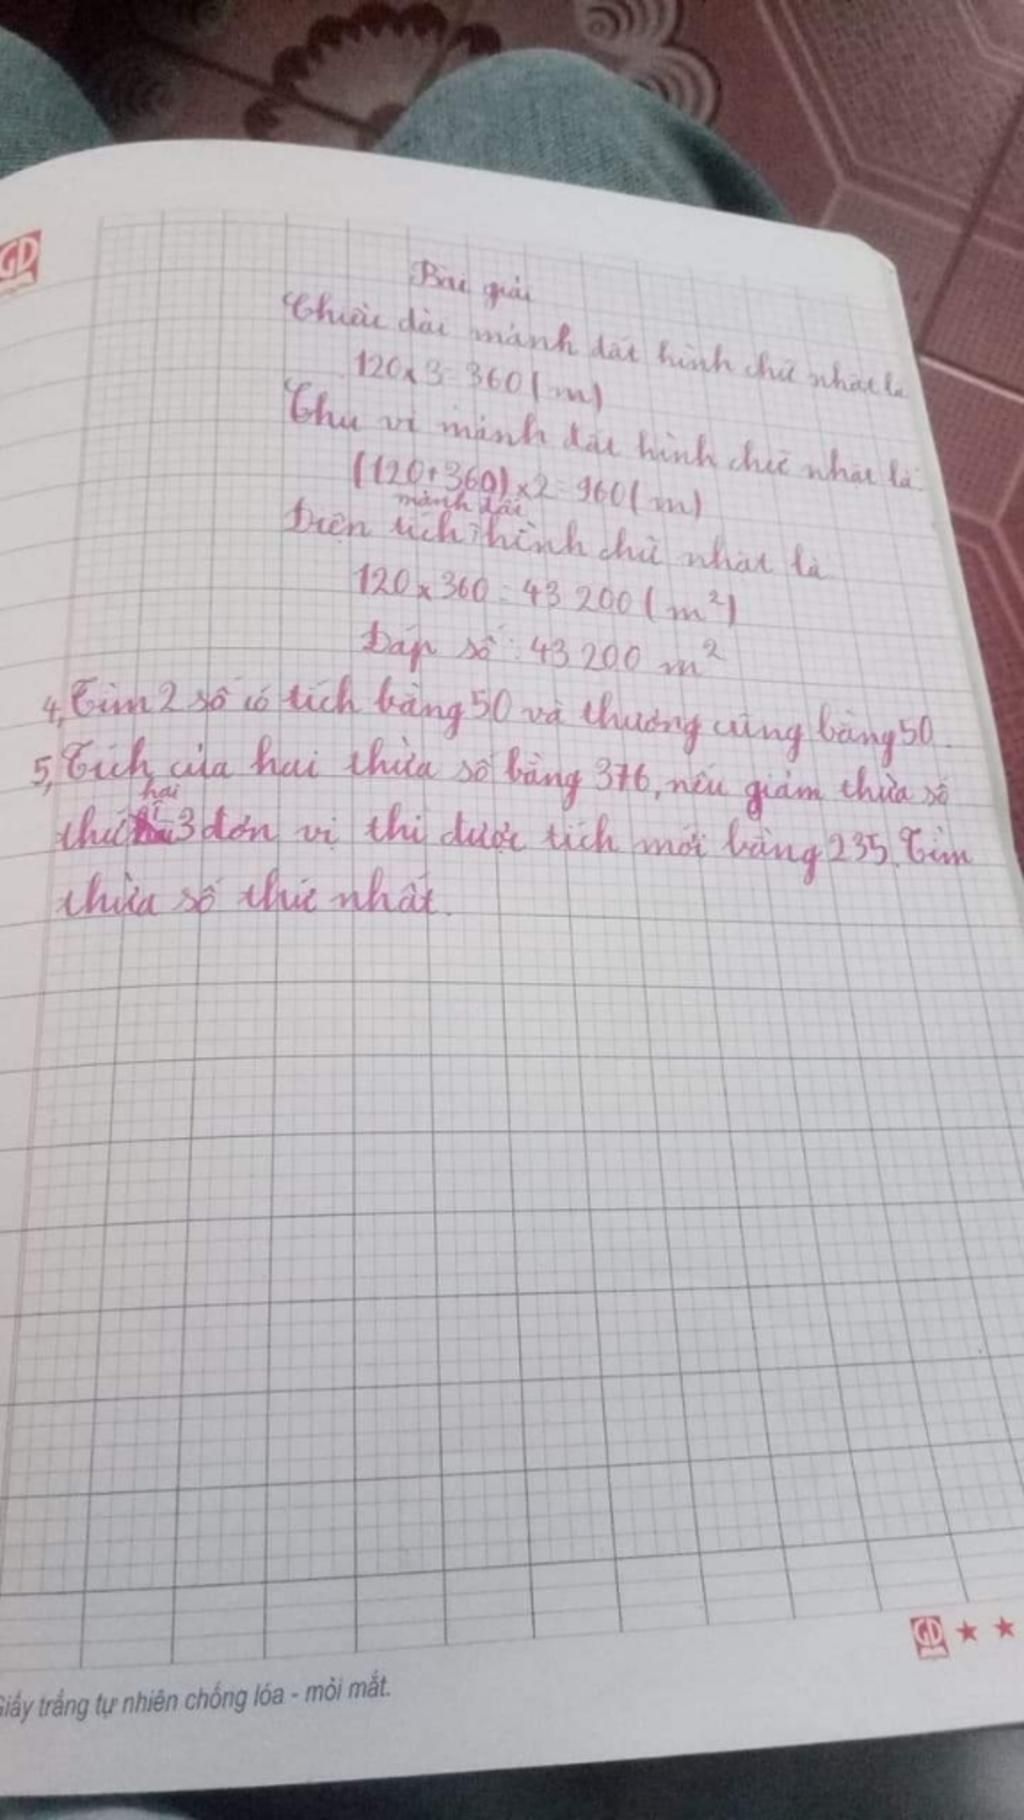 GD
Bài giải
Chiều dài mảnh đất hình chữ nhật là
120 x 3 = 360 (m)
Chu vi mảnh đất hình chữ nhật là
(120 + 360) x 2 = 960 (m)
mảnh đất
Diện tích hình chữ nhật là
120 x 360 = 43 200 (m²)
Đáp số : 43 200 m²
4, Tìm 2 số có tích bằng 50 và thương cũng bằng 50.
5, Tích của hai thừa số bằng 376, nếu giảm thừa số
hai
thứ 3 đơn vị thì được tích mới bằng 235. Tìm
thừa số thứ nhất.
GD
Giấy trắng tự nhiên chống lóa - mỏi mắt.